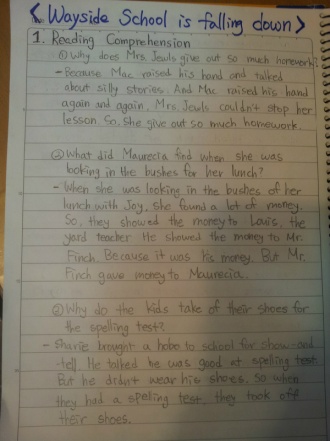 < Wayside School is falling down >
1. Reading Comprehension
① Why does Mrs. Jewls give out so much homework?
- Because Mac raised his hand and talked
about silly stories. And Mac raised his hand
again and again, Mrs. Jewls couldn't stop her
lesson. So, she give out so much homework.
② What did Maurecia find when she was
looking in the bushes for her lunch?
- When she was looking in the bushes of her
lunch with Joy, she found a lot of money.
So, they showed the money to Louis, the
yard teacher. He showed the money to Mr.
Finch. Because it was his money. But Mr.
Finch gave money to Maurecia.
③ Why do the kids take of their shoes for
the spelling test?
- Sharie brought a hobo to school for show-and
-tell. He talked he was good at spelling test
But he didn't wear his shoes. So when
they had a spelling test they took off
their shoes.